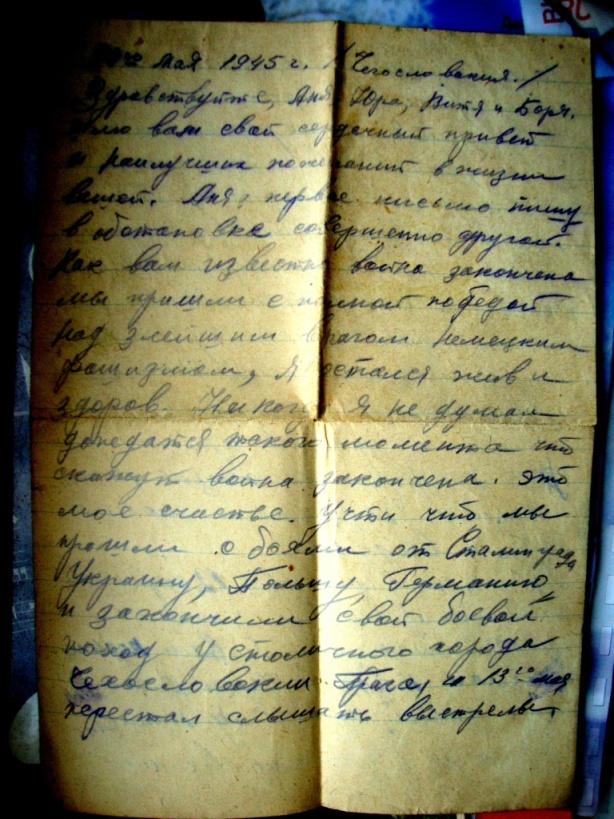 мая 1945 г. / Чегословакия. /
Здравствуйте, Аня, Юра, Витя и Боря.
Шлю вам свой сердечный привет
и наилучших пожеланий в жизни
вашей. Аня, первое письмо пишу
в обстановке совершенно другой.
Как вам известно война закончена
мы пришли с полной победой
над злейшим врагом немецким
фашизмом, я остался жив и
здоров. Никогда я не думал
дождатся такого момента что
скажут война закончена. Это
мое счастье. Учти что мы
прошли с боями от Сталинграда
Украину, Польшу, Германию
и закончили свой боевой
поход у столичного города
Чехословакии Прага, и 13го мая
перестал слышать выстрелы,